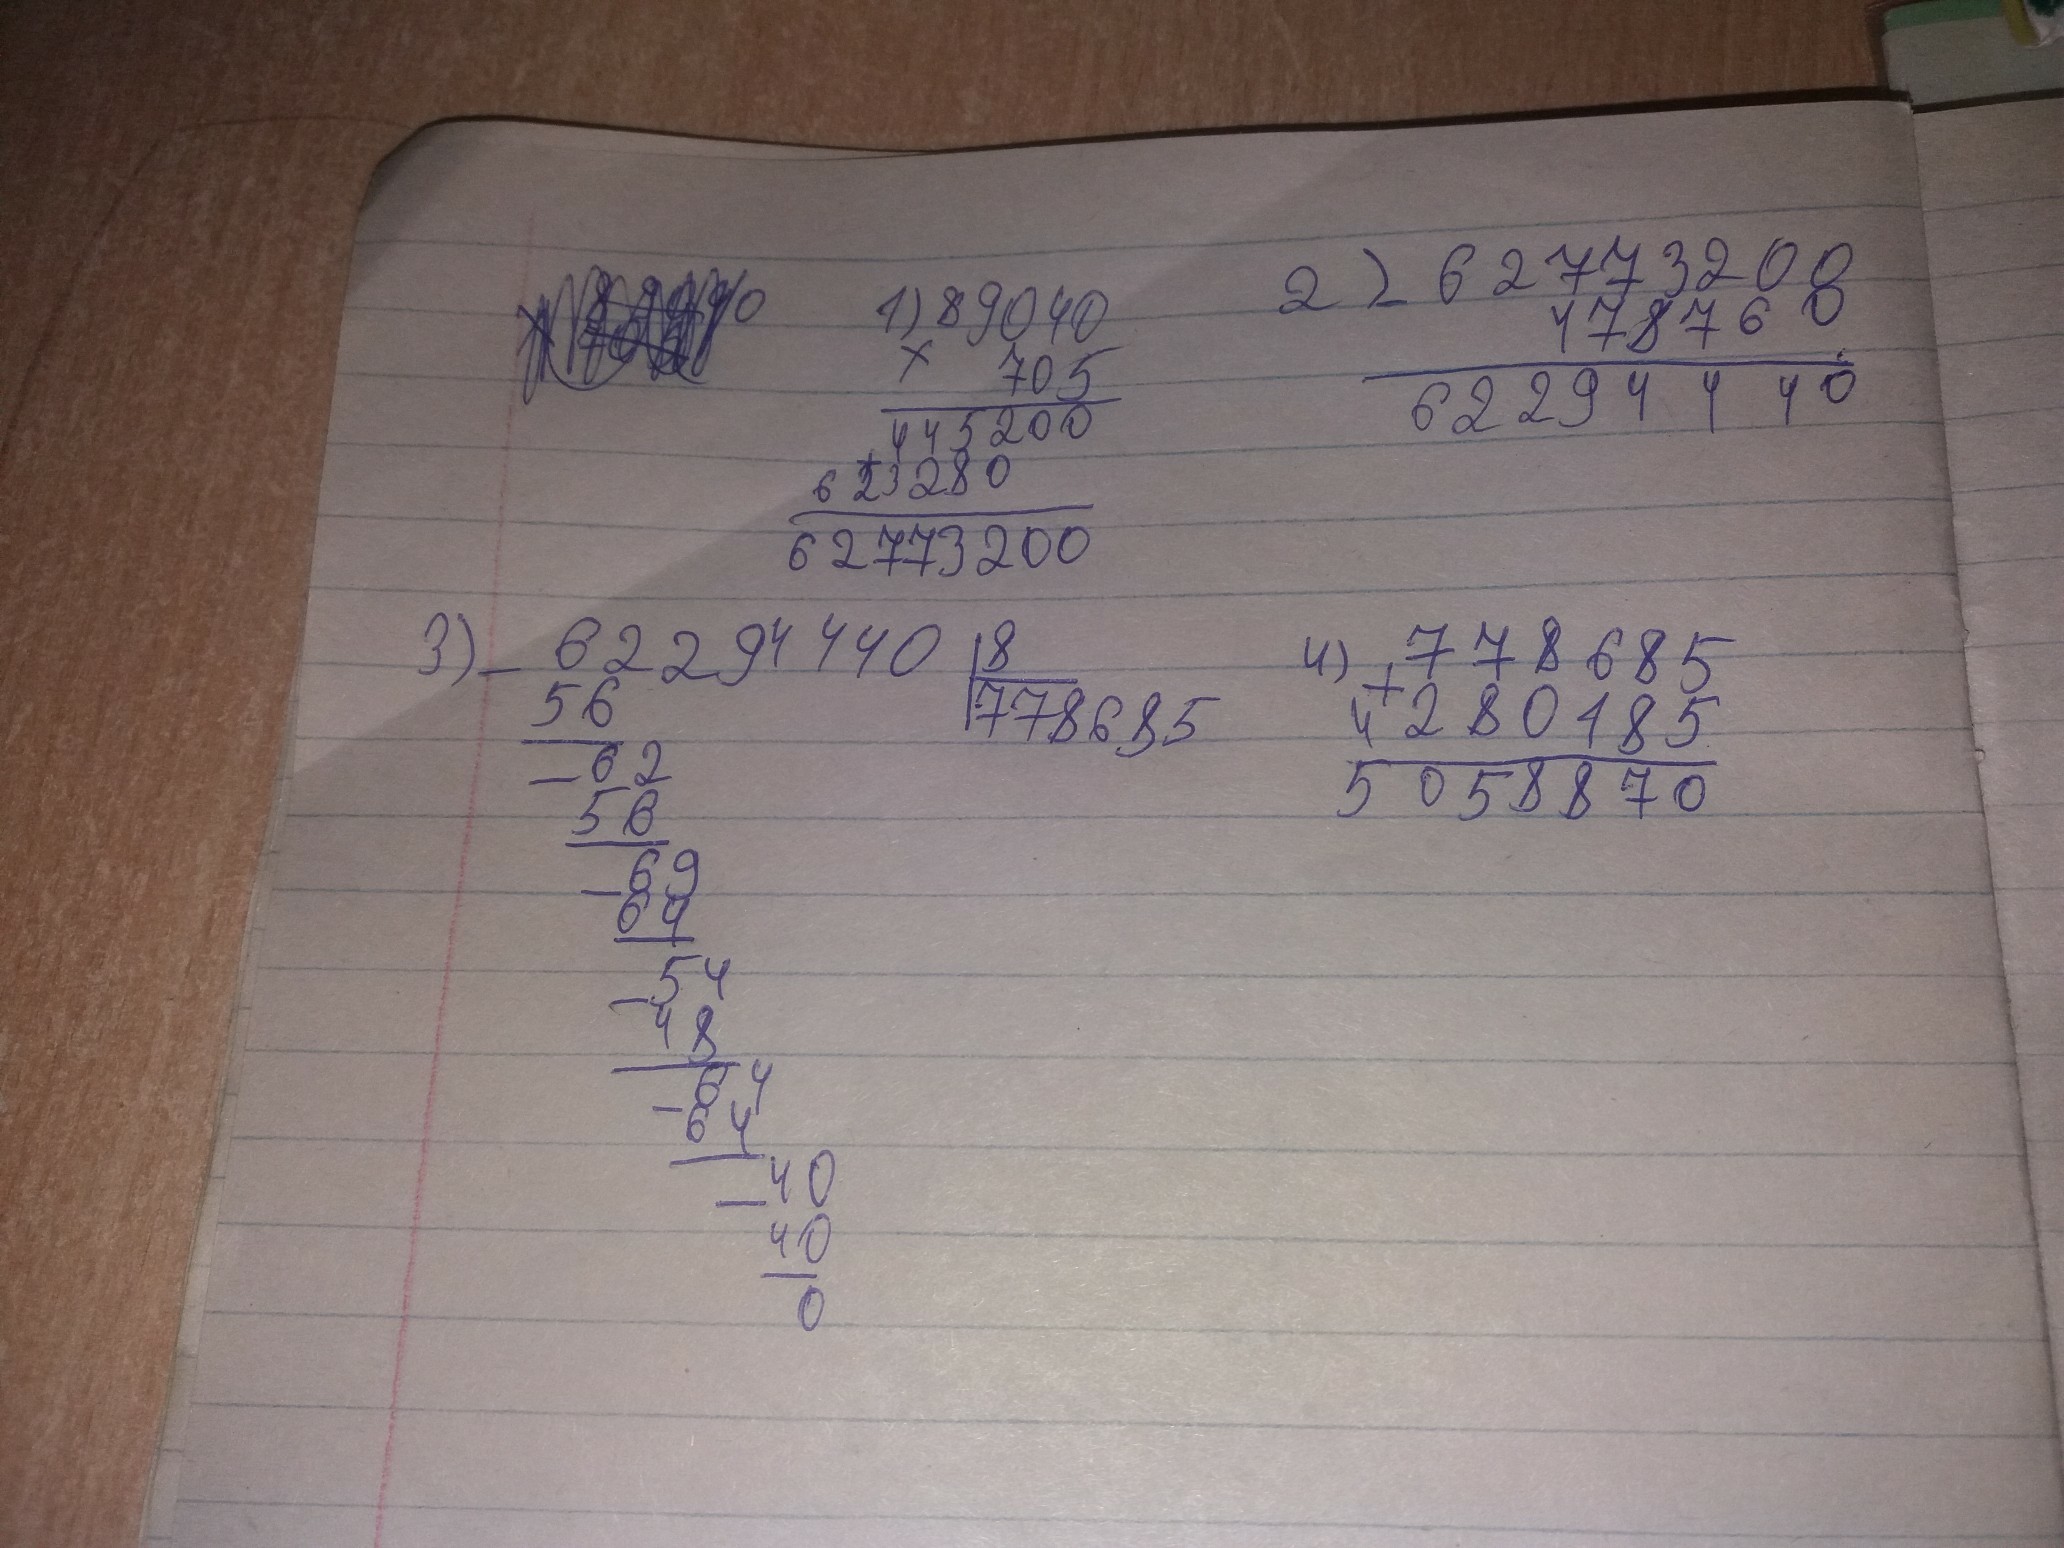 1) 89040
× 705
445200
+
623280
62773200
2) - 62773200
478760
62294440
3) - 62294440 | 8
56 778685
- 62
56
- 69
64
- 54
48
- 64
64
- 40
40
0
4) + 778685
4280185
5058870